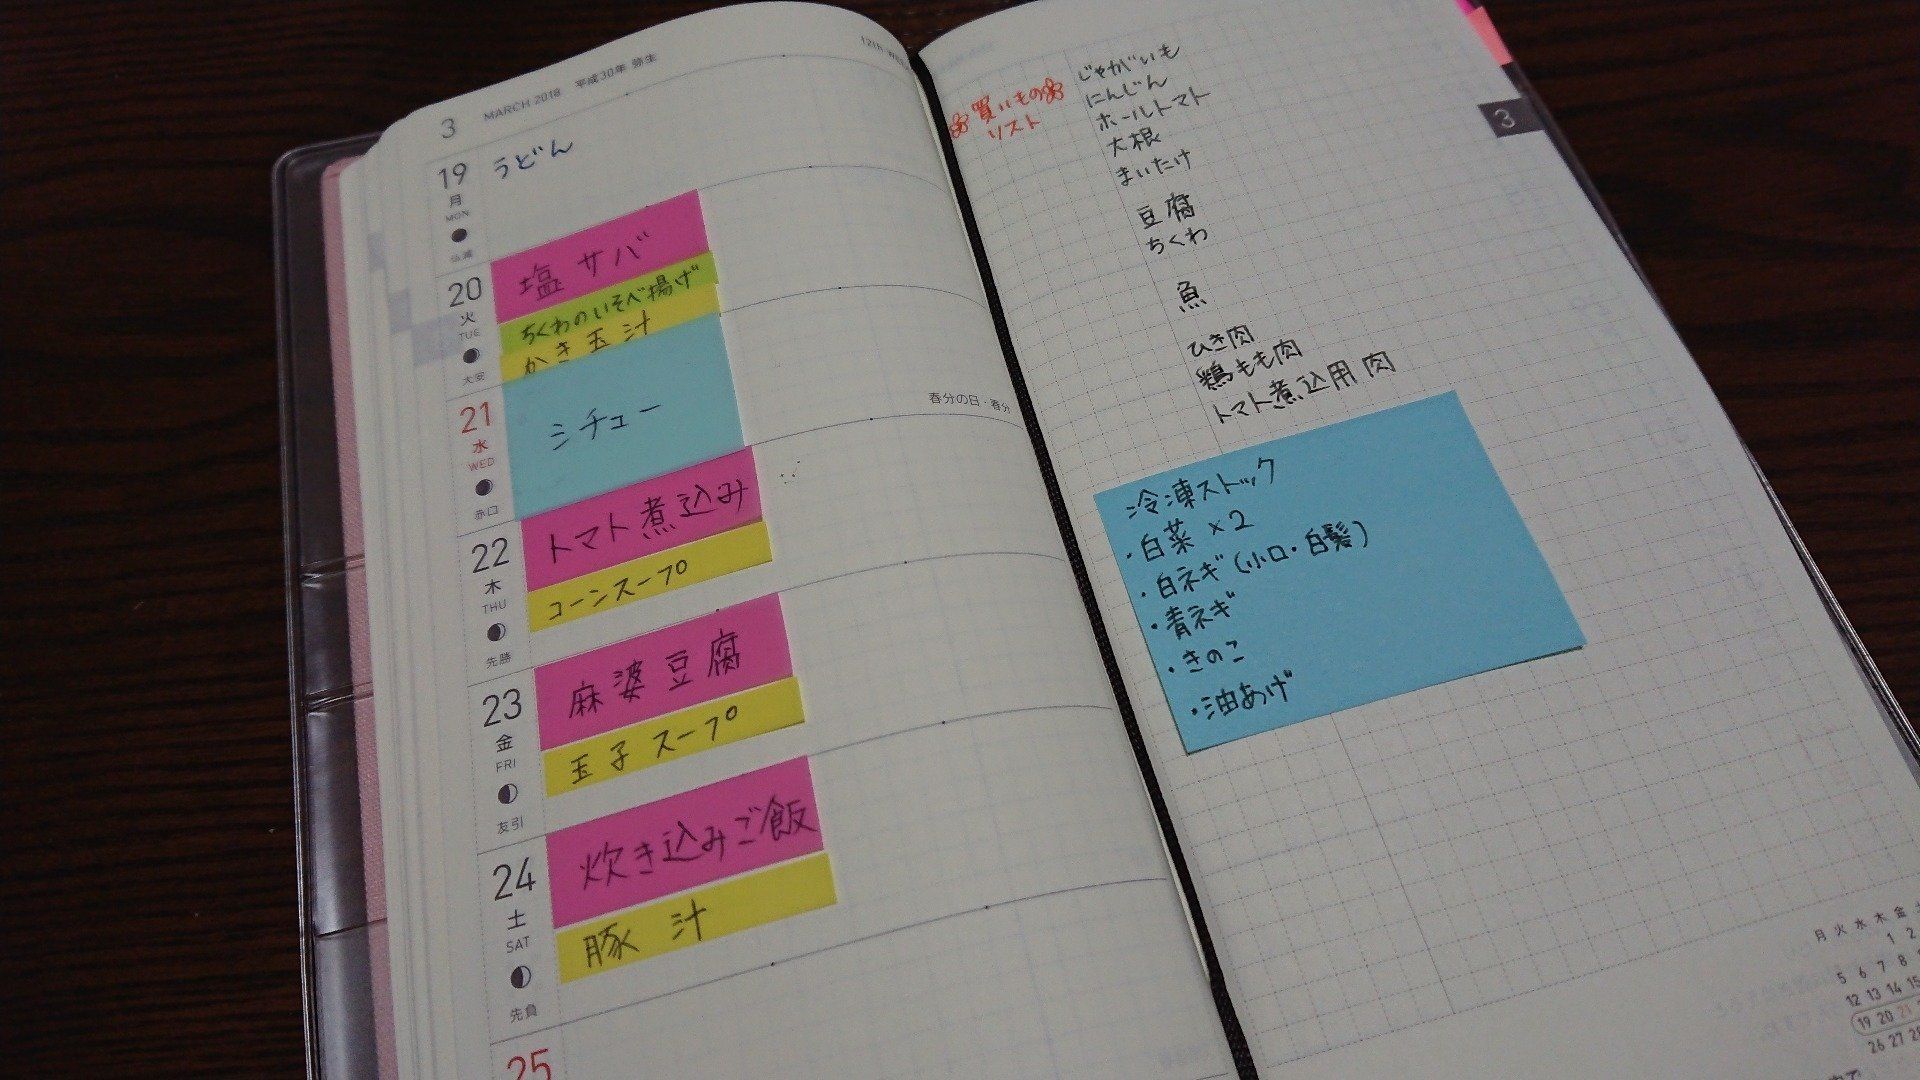 3 MARCH 2018 平成30年 弥生
12th
19 うどん
月
MON
仏滅
塩サバ
20 ちくわのいそべ揚げ
火 かき玉汁
TUE
大安
春分の日・春分
21 シチュー
水
WED
赤口
トマト煮込み
22 コーンスープ
木
THU
先勝
23 麻婆豆腐
金 玉子スープ
FRI
友引
24 炊き込みご飯
土 豚汁
SAT
先負
25
✿買いもの✿
リスト
じゃがいも
にんじん
ホールトマト
大根
まいたけ
豆腐
ちくわ
魚
ひき肉
鶏もも肉
トマト煮込用肉
3
冷凍ストック
・白菜 ×2
・白ネギ(小口・白髪)
・青ネギ
・きのこ
・油あげ
月 火 水 木 金
1 2
5 6 7 8
12 13 14 15
19 20 21
26 27 28